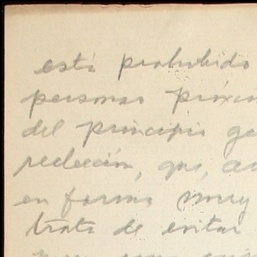 está prohibido
personas próxim
del principio ge
reelección, que, a
en forma muy
trata de evitar